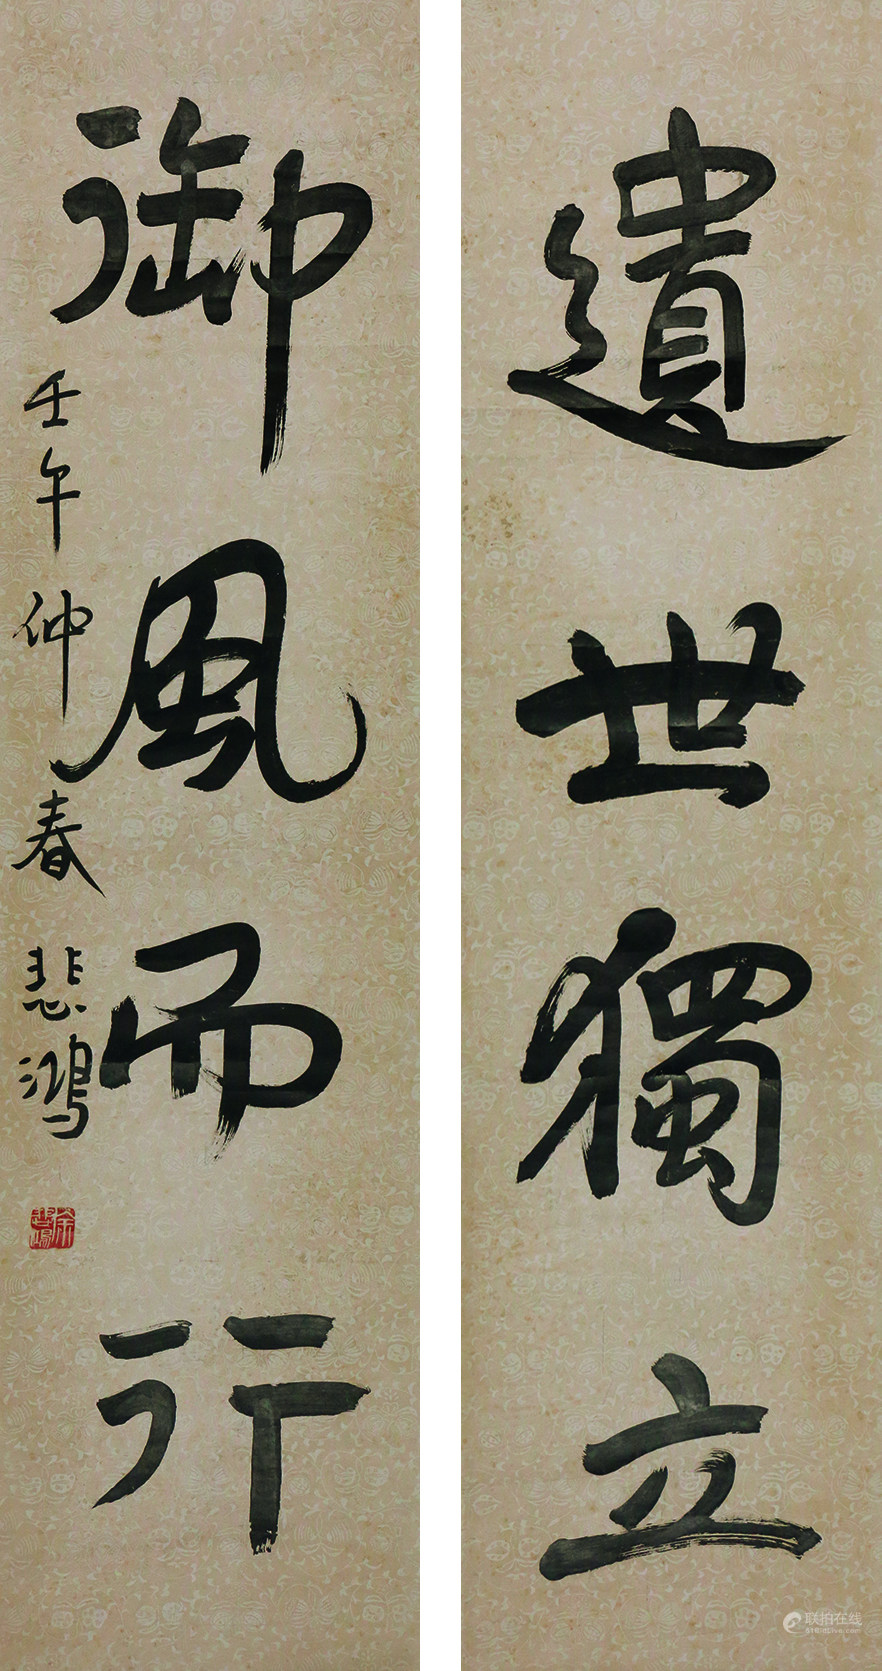 遺世獨立
御風而行
壬午仲春 悲鴻
徐悲鴻
联拍在线